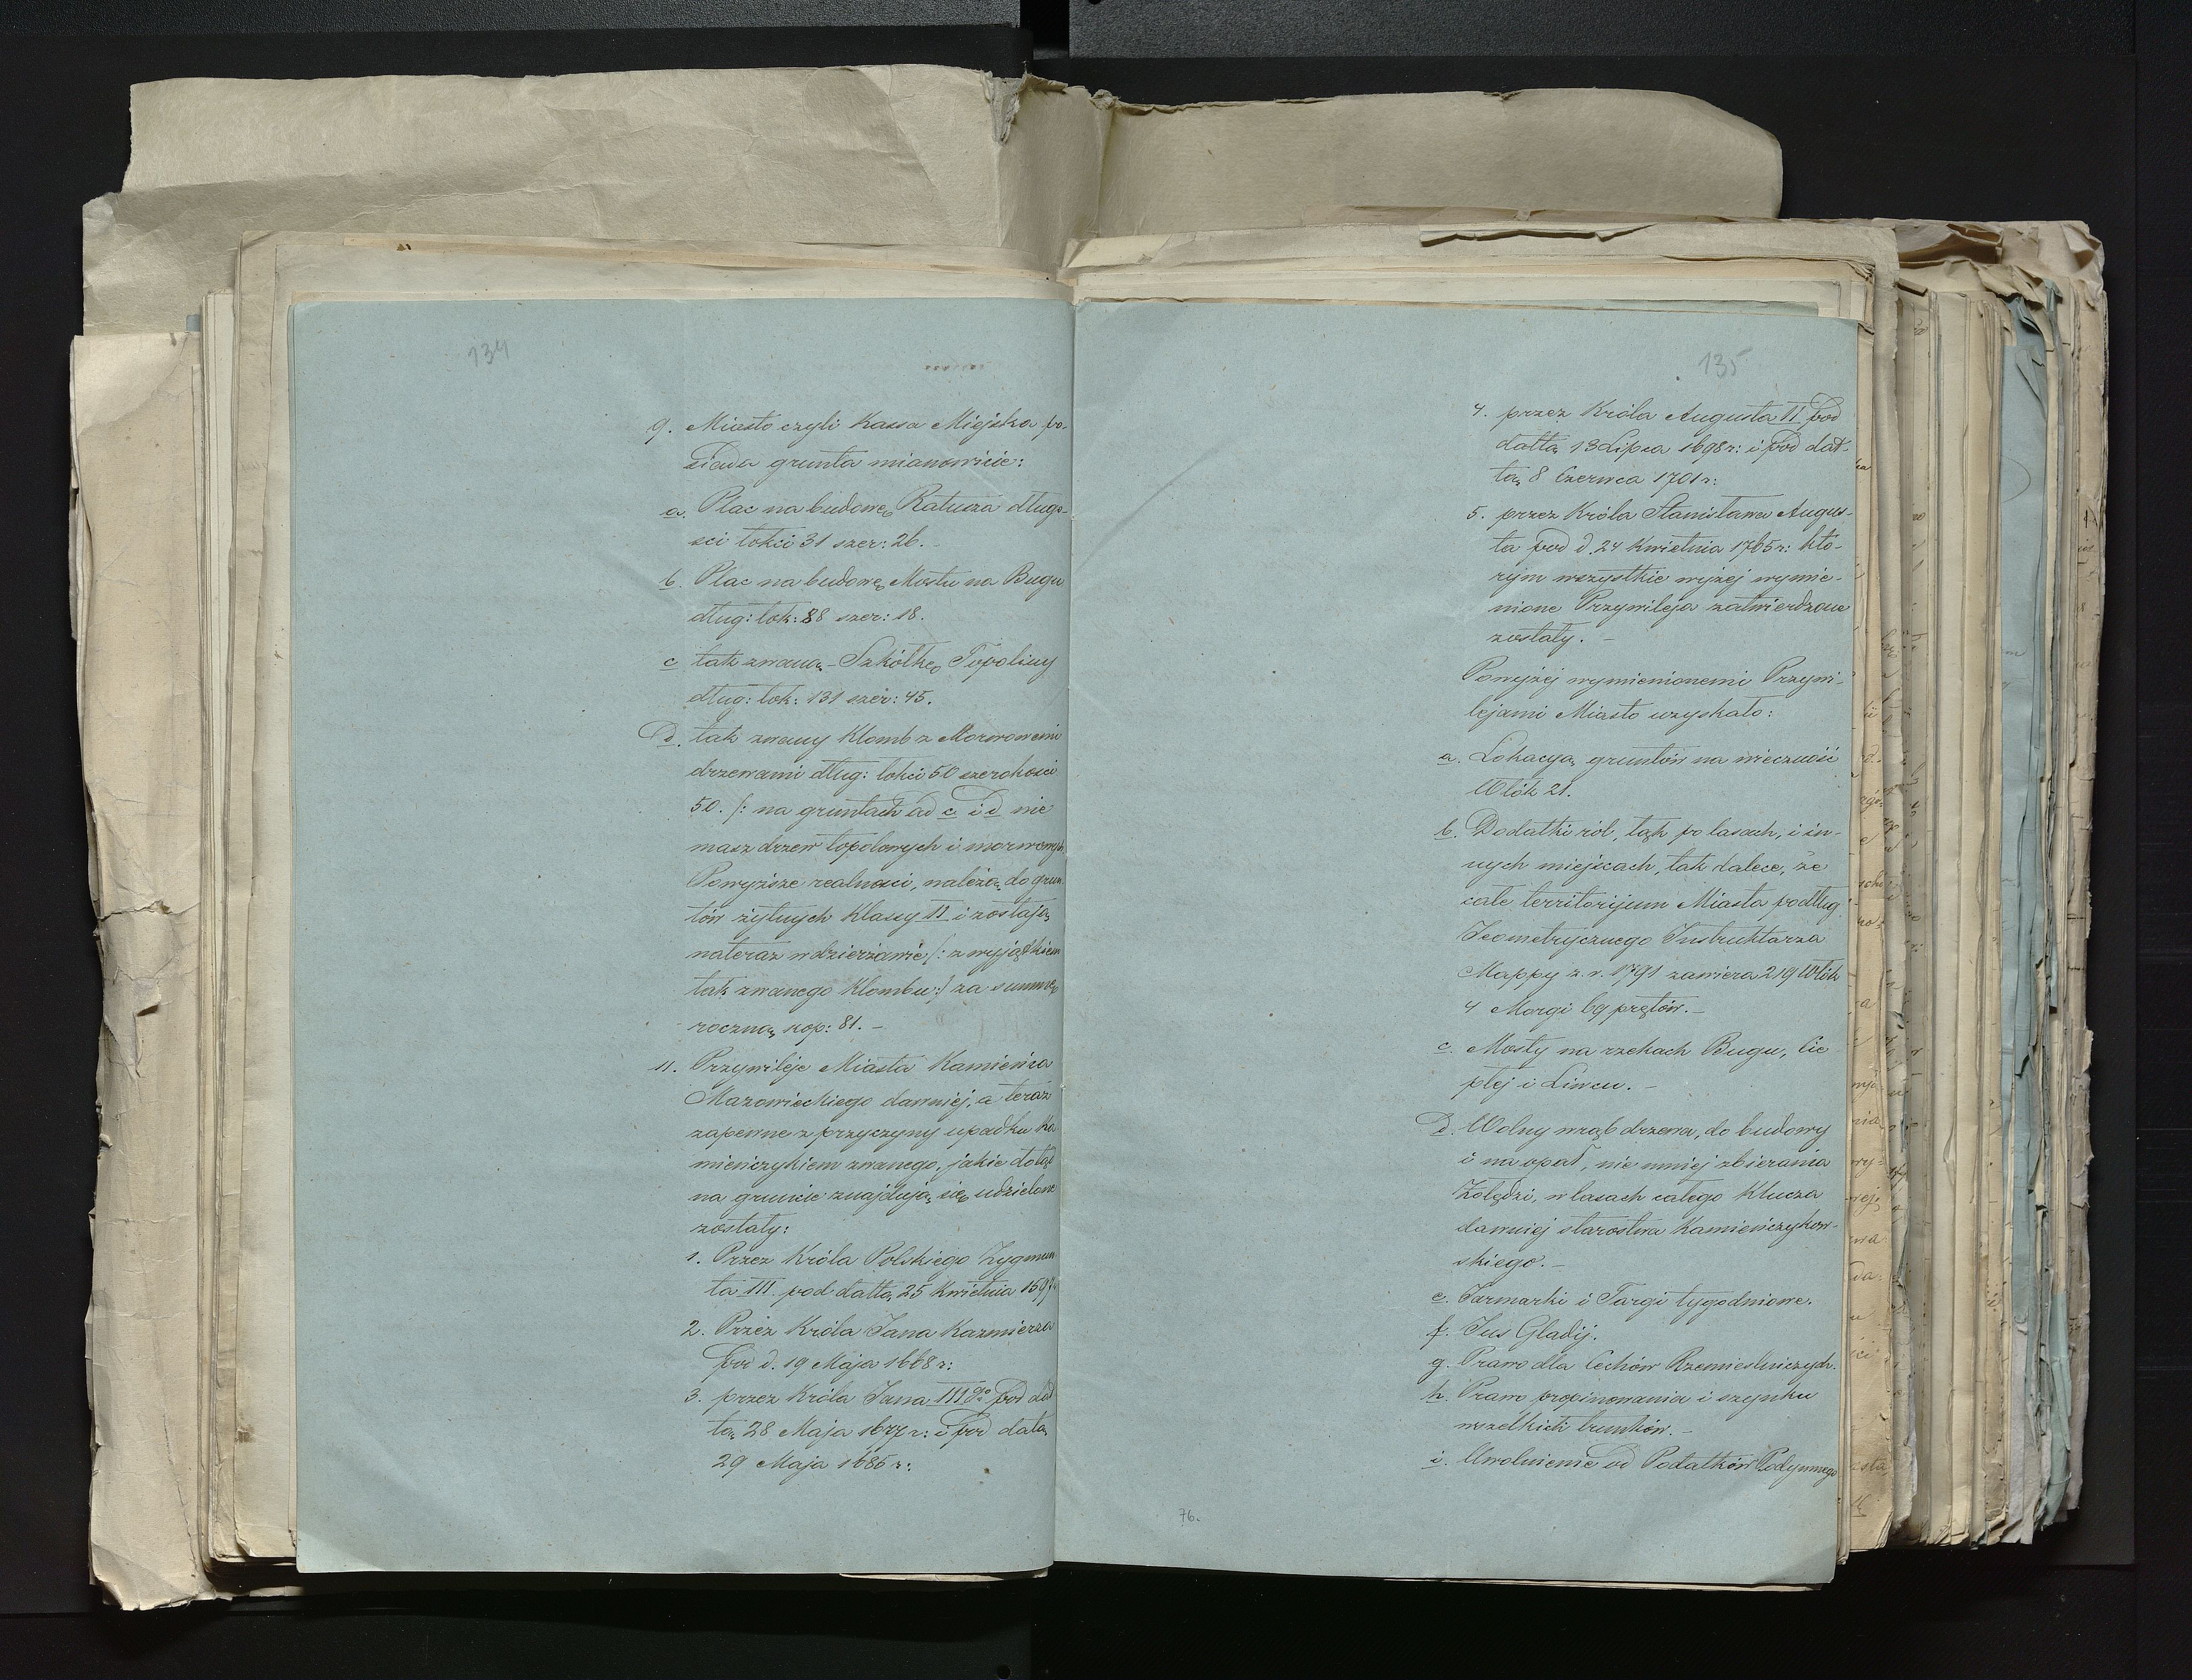 134
9. Miasto czyli Kassa Miejska po-
siada grunta mianowicie:
a. Plac na budowę Ratusza długo-
ści łokci 31 szer: 26. –
b. Plac na budowę Mostu na Bugu
dług: łok: 88 szer: 18.
c tak zwaną – Szkółkę Topoliny
dług: łok: 131 szer: 45.
d. tak zwany Klomb z Morwowemi
drzewami dług: łokci 50 szerokości
50. /: na gruntach ad c i d nie
masz drzew topolowych i morwowych
Powyższe realności, należą do grun
tów żytnych Klassy II i zostają
nateraz w dzierżawie /: z wyjątkiem
tak zwanego Klombu :/ za summę
roczną kop: 81. –
11. Przywileje Miasta Kamieńca
Mazowieckiego dawniéj, a teraz
zapewne z przyczyny upadku Ka
mieńczykiem zwanego, jakie dotąd
na gruncie znajdują się udzielone
zostały:
1. Przez Króla Polskiego Zygmun
ta III. pod dattą 25 Kwietnia 1597
2. Przez Króla Jana Kazmierza
pod d. 19 Maja 1668 r:
3. przez Króla Jana III go pod dat
tą 28 Maja 1677 r: i pod datą
29 Maja 1685 r:
135
4. przez Króla Augusta II. pod
dattą 13 Lipca 1698 r: i pod dat-
tą 8 Czerwca 1701 r:
5. przez Króla Stanisława Augus-
ta pod d. 24 Kwietnia 1765 r: któ-
rym wszystkie wyżej wymie-
nione Przywileja zatwierdzone
zostały. –
Powyżéj wymienionemi Przywi-
lejami Miasto uzyskało:
a. Lokacyą gruntów na wieczność
Włók 21.
b. Dodatki ról, łąk po lasach, i in-
nych miejscach, tak dalece, że
całe territorijum Miasta podług
Jeometrycznego Instruktarza
Mappy z. r. 1791 zawiera 219 Włók
4 Morgi 69 prętów. –
c. Mosty na rzekach Bugu, Cie
płej i Liwcu. –
d. Wolny wrąb drzewa, do budowy
i na opał, nie mniej zbierania
Żołędzi, w lasach całego Klucza
dawniej starostwa Kamieńczykow-
skiego. –
e. Jarmarki i Targi tygodniowe.
f. Jus Gladij.
g. Prawo dla Cechów Rzemieślniczych.
h. Prawo propinowania i szynku
wszelkich trunków. –
i. Uwolnienie od Podatków Podymnego
76.